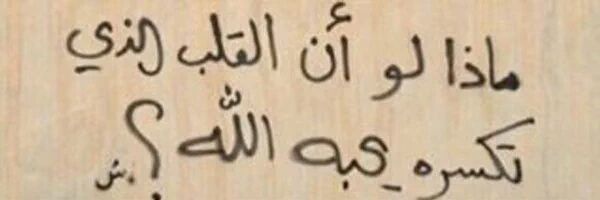 ماذا لو أن القلب الذي
تكسره يحبه اللّٰه ؟
ش